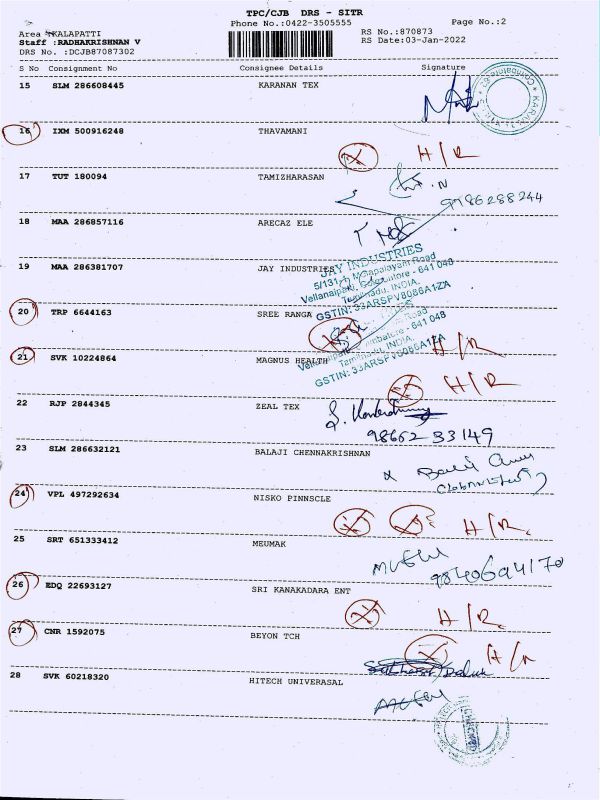 TPC/CJB DRS - SITR
Phone No.:0422-3505555 Page No.:2
Area :KALAPATTI RS No.:870873
Staff :RADHAKRISHNAN V RS Date:03-Jan-2022
DRS No. :DCJB87087302
S No Consignment No Consignee Details Signature
15 SLM 286608445 KARANAN TEX
16 IXM 500916248 THAVAMANI
H/R
17 TUT 180094 TAMIZHARASAN
9786288244
18 MAA 286857116 ARECAZ ELE
19 MAA 286381707 JAY INDUSTRIES
JAY INDUSTRIES
Coimbatore - 641 048
Tamilnadu, INDIA.
GSTIN: 33ARSPV8086A1ZA
20 TRP 6644163 SREE RANGA
H/R
21 SVK 10224864 MAGNUS HEALTH
GSTIN: 33ARSPV8086A1ZA
H/R
22 RJP 2844345 ZEAL TEX
98662 33149
23 SLM 286632121 BALAJI CHENNAKRISHNAN
24 VPL 497292634 NISKO PINNSCLE
H/R
25 SRT 651333412 MEUMAK
9840694170
26 EDQ 22693127 SRI KANAKADARA ENT
H/R
27 CNR 1592075 BEYON TCH
H/R
28 SVK 60218320 HITECH UNIVERASAL